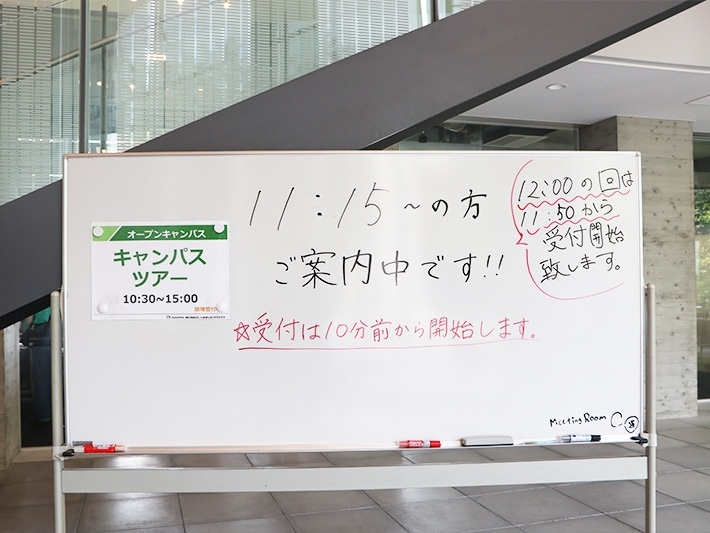 オープンキャンパス
キャンパス
ツアー
10:30~15:00
11:15~の方
ご案内中です!!
☆受付は10分前から開始します。
12:00の回は
11:50から
受付開始
致します。
Meeting Room C